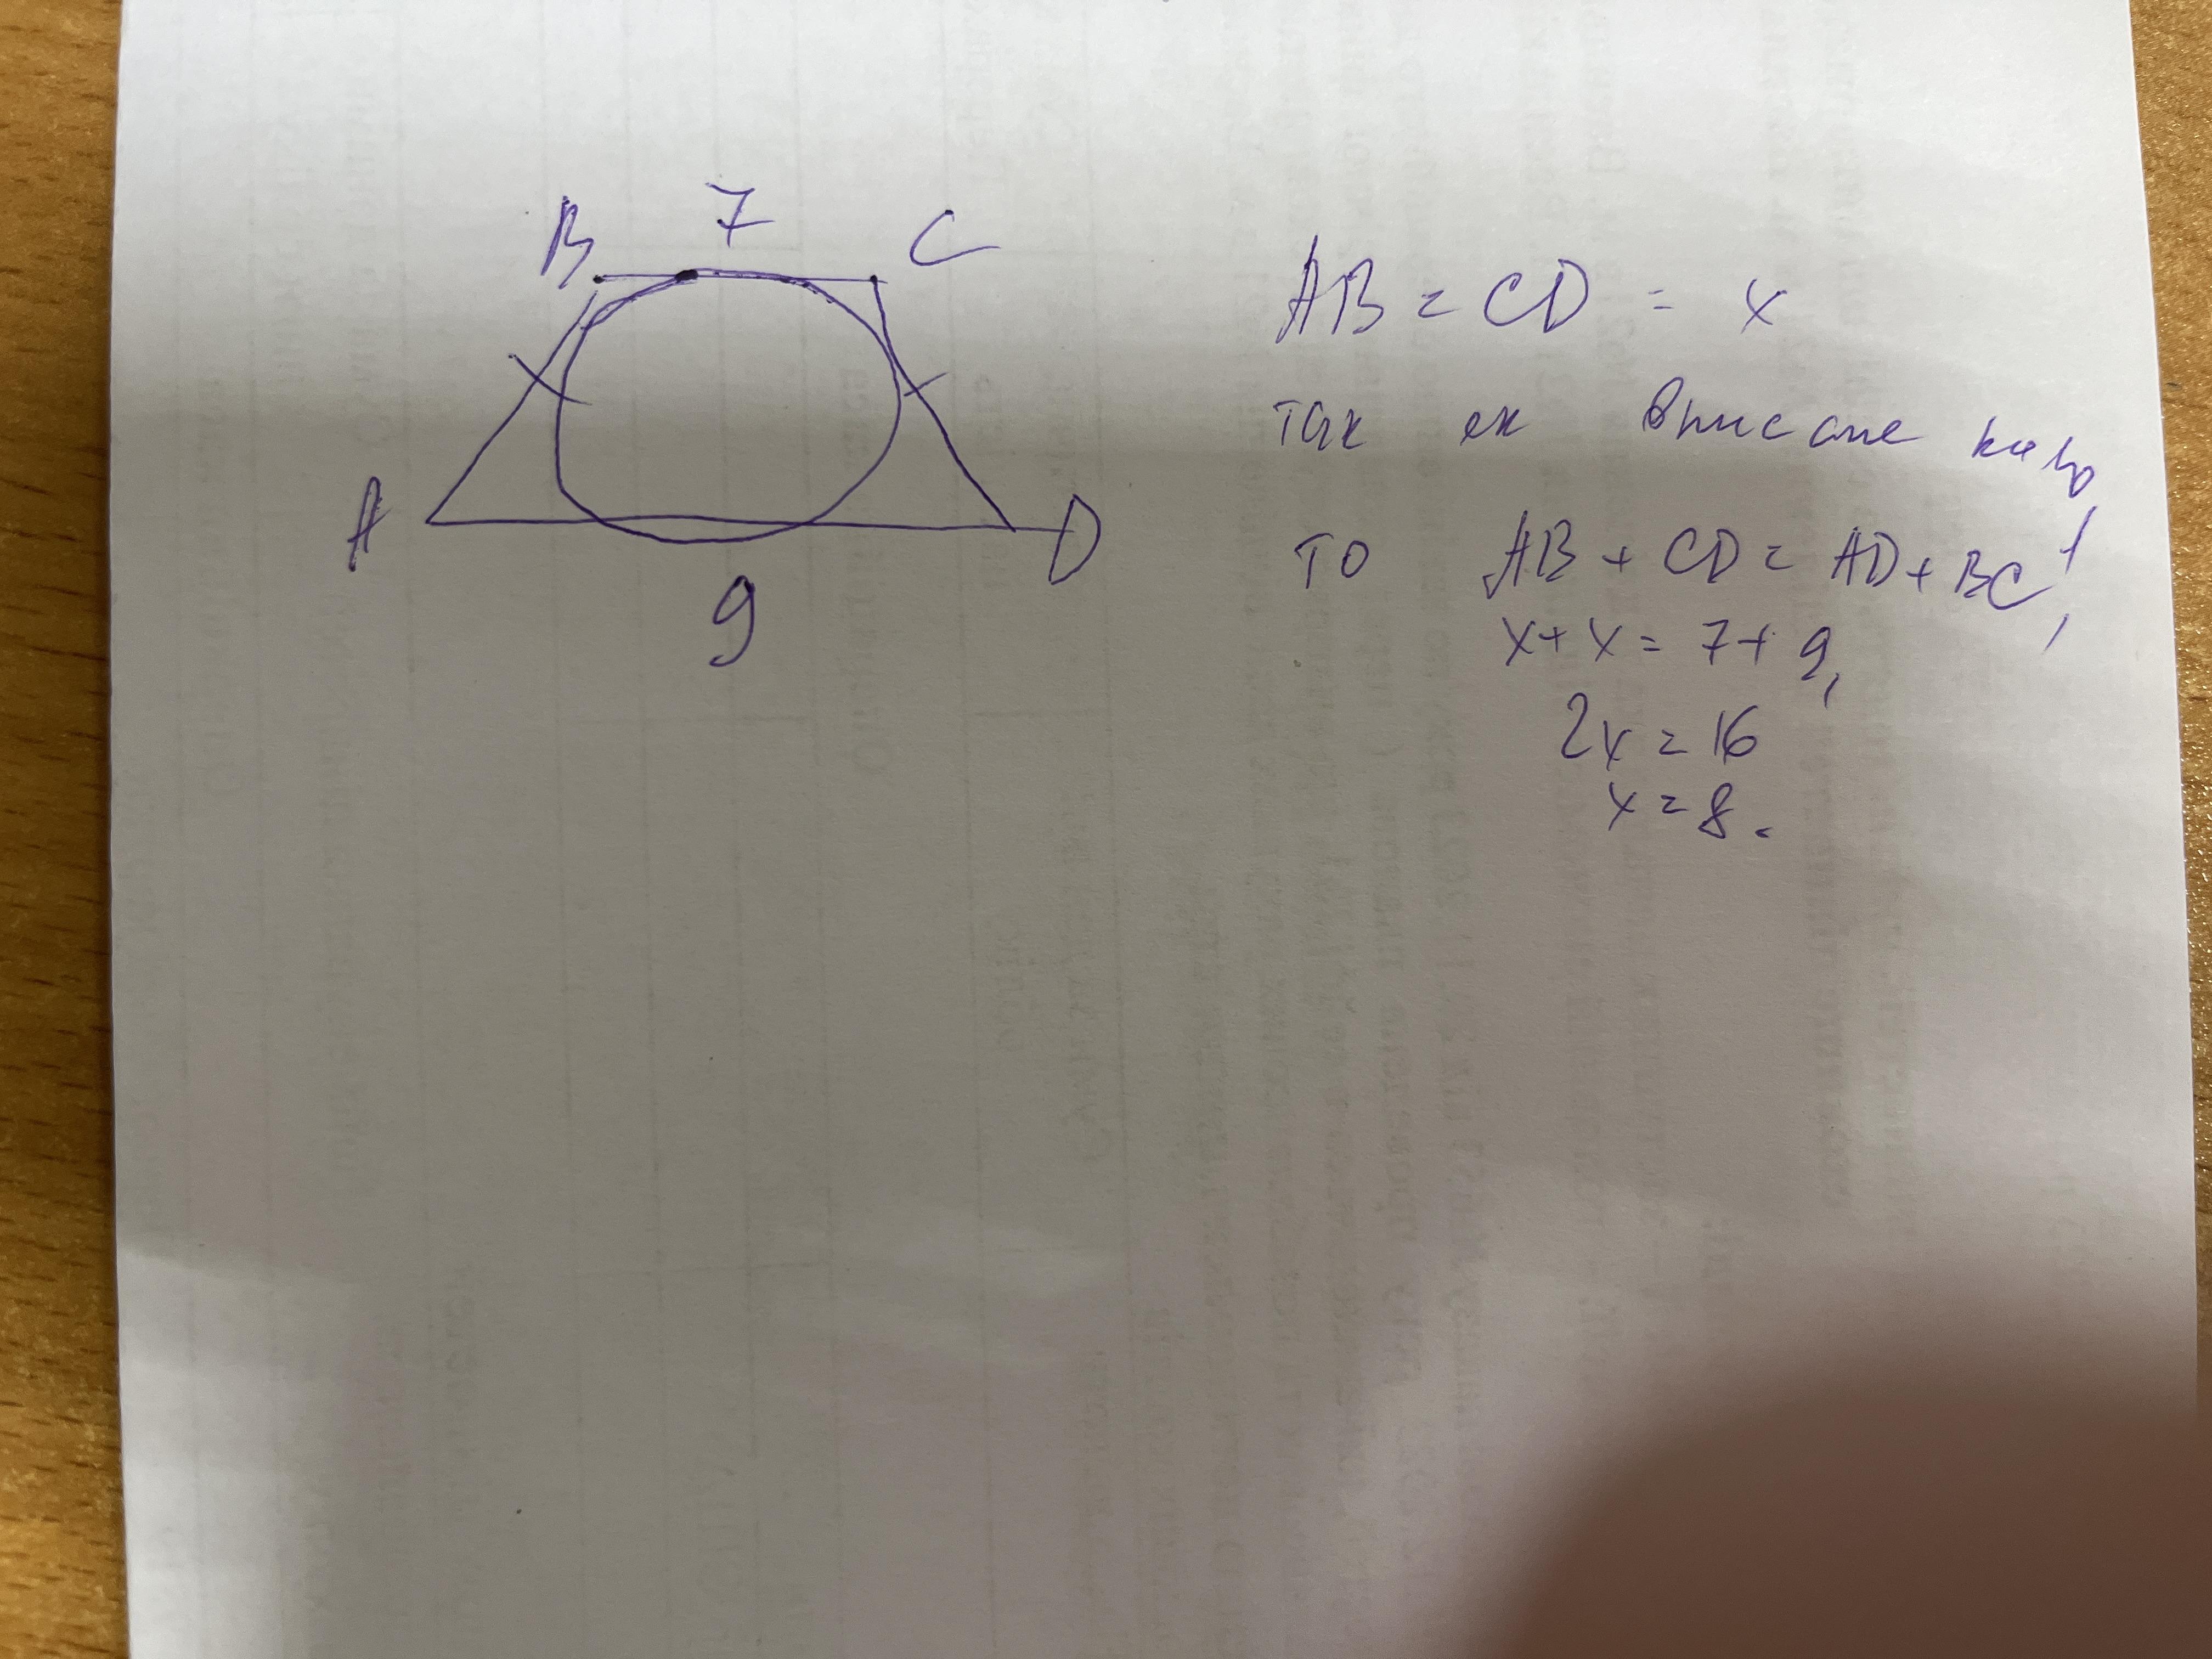 B 7 C
A D
9
AB = CD = x
так как вписана
то AB + CD = AD + BC,
x + x = 7 + 9,
2x = 16
x = 8.